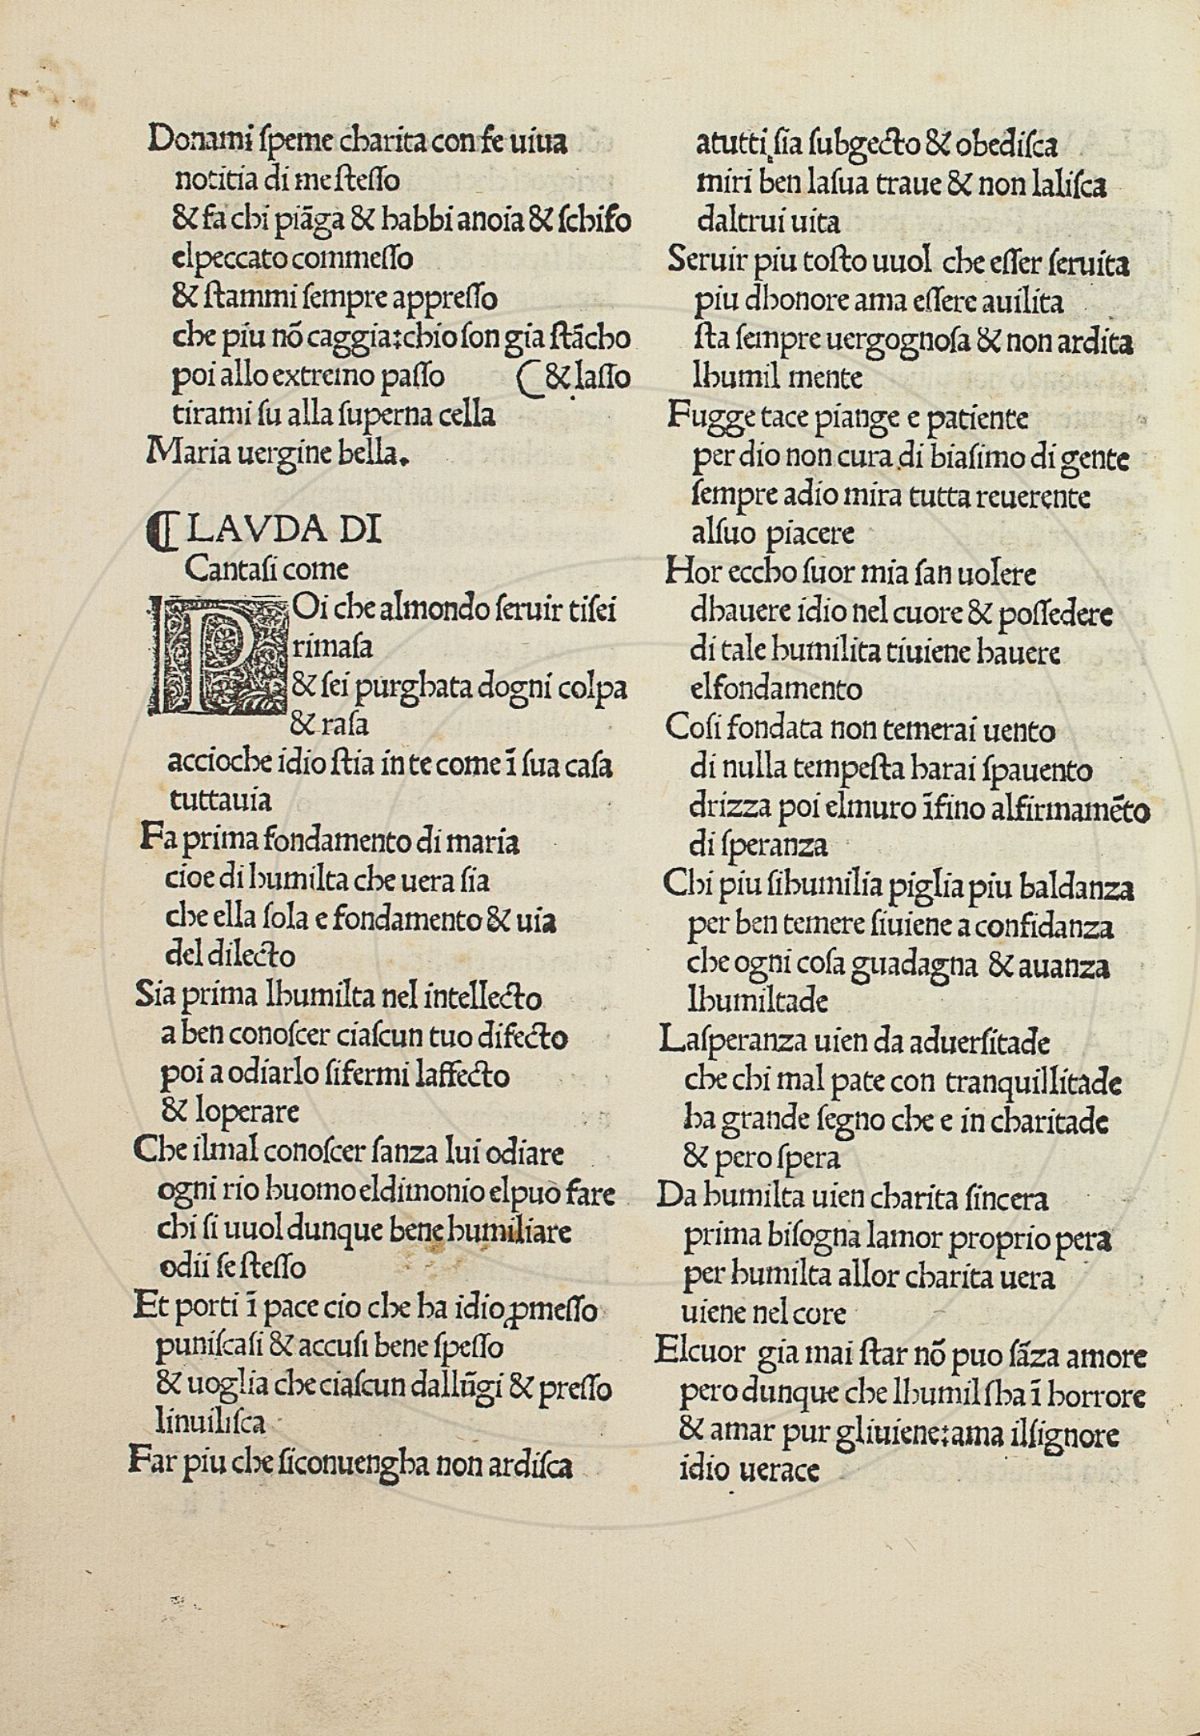 Donami ſpeme charita con fe uiua
notitia di me ſteſſo
& fa chi piãga & habbi a noia & ſchifo
el peccato commeſſo
& ſtammi ſempre appreſſo
che piu nõ caggia: chio ſon gia ſtãcho
poi allo extremo paſſo (& laſſo
tirami ſu alla ſuperna cella
Maria uergine bella.
¶ LAVDA DI
Cantaſi come
POi che almondo ſeruir tiſei
rimaſa
& ſei purghata dogni colpa
& raſa
accioche idio ſtia in te come ĩ ſua caſa
tuttauia
Fa prima fondamento di maria
cioe di humilta che uera ſia
che ella ſola e fondamento & uia
del dilecto
Sia prima lhumilta nel intellecto
a ben conoſcer ciaſcun tuo difecto
poi a odiarlo ſifermi laffecto
& loperare
Che ilmal conoſcer ſanza lui odiare
ogni rio huomo eldimonio elpuo fare
chi ſi uuol dunque bene humiliare
odii ſe ſteſſo
Et porti ĩ pace cio che ha idio ꝑmeſſo
puniſcaſi & accuſi bene ſpeſſo
& uoglia che ciaſcun dallũgi & preſſo
linuiliſca
Far piu che ſiconuengha non ardiſca
atutti ſia ſubgecto & obediſca
miri ben laſua traue & non laliſca
daltrui uita
Seruir piu toſto uuol che eſſer ſeruita
piu dhonore ama eſſere auilita
ſta ſempre uergognoſa & non ardita
lhumil mente
Fugge tace piange e patiente
per dio non cura di biaſimo di gente
ſempre adio mira tutta reuerente
alſuo piacere
Hor eccho ſuor mia ſan uolere
dhauere idio nel cuore & poſſedere
di tale humilita tiuiene hauere
elfondamento
Coſi fondata non temerai uento
di nulla tempeſta harai ſpauento
drizza poi elmuro ĩfino alfirmamẽto
di ſperanza
Chi piu ſihumilia piglia piu baldanza
per ben temere ſiuiene a confidanza
che ogni coſa guadagna & auanza
lhumiltade
Laſperanza uien da aduerſitade
che chi mal pate con tranquillitade
ha grande ſegno che e in charitade
& pero ſpera
Da humilta uien charita ſincera
prima biſogna lamor proprio pera
per humilta allor charita uera
uiene nel core
Elcuor gia mai ſtar nõ puo ſãza amore
pero dunque che lhumil ſha ĩ horrore
& amar pur gliuiene: ama ilſignore
idio uerace